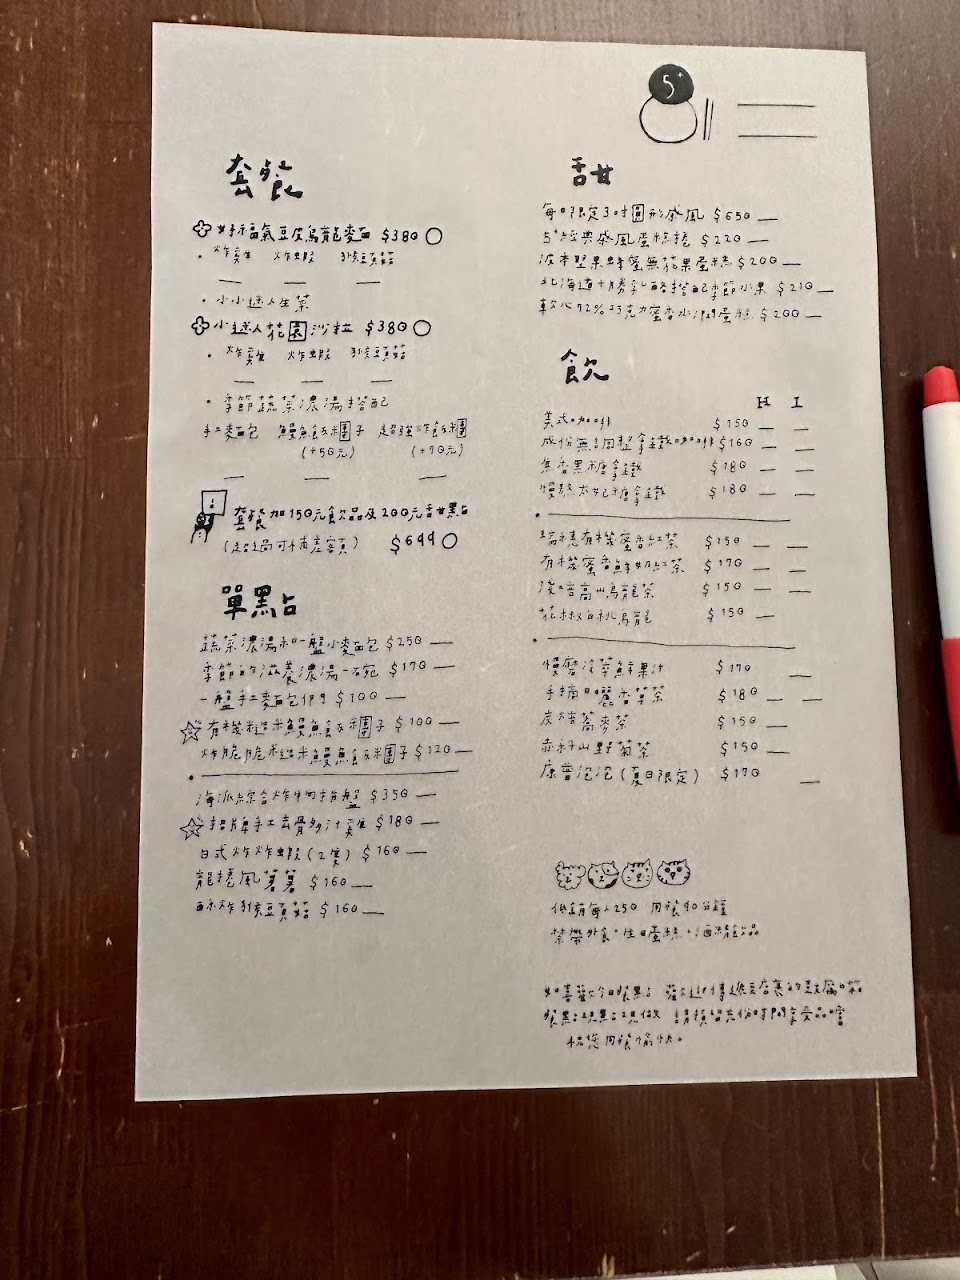 5+
套餐
好福氣豆皮烏龍麵 $380
・炸雞 炸蝦 猴頭菇
・小小迷人生菜
小迷人花園沙拉 $380
・炸雞 炸蝦 猴頭菇
・季節蔬菜濃湯搭配
手工麵包 鰻魚飯糰子 超強炸飯糰
(+50元) (+70元)
套餐加150元飲品及200元甜點
(超過可補差額) $699
單點
蔬菜濃湯和一盤小麵包 $250
季節的滋養濃湯一碗 $170
一盤手工麵包們 $100
有機糙米鰻魚飯糰子 $100
炸脆脆糙米鰻魚飯糰子 $120
海派綜合炸物拼盤 $350
招牌手工去骨多汁雞 $180
日式炸炸蝦(2隻) $160
龍捲風薯薯 $160
酥炸猴頭菇 $160
甜
每日限定3吋圓形戚風 $650
5+經典戚風蛋糕捲 $220
波本堅果蜂蜜無花果蛋糕 $200
北海道十勝乳酪搭配季節小果 $210
軟心72%巧克力蜜香水潤蛋糕 $200
飲
H I
美式咖啡 $150
成份無調整拿鐵咖啡 $160
焦香黑糖拿鐵 $180
慢熬太妃糖拿鐵 $180
瑞穗有機蜜香紅茶 $150
有機蜜香鮮奶紅茶 $170
淺焙高山烏龍茶 $150
花椒白桃烏龍 $150
慢磨菠萃鮮果汁 $170
手摘日曬香草茶 $180
炭焙蕎麥茶 $150
赤科山野菊茶 $150
康普泡泡(夏日限定) $170
低銷每人250 用餐90分鐘
禁帶外食・生日蛋糕・酒精飲品
餐點現點現做 請預留充份時間享受品嚐
祝您用餐愉快。